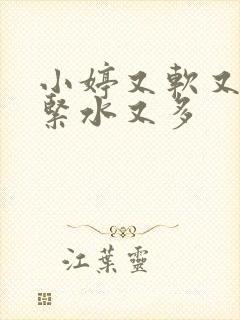 小婷又軟又
緊水又多
江葉靈